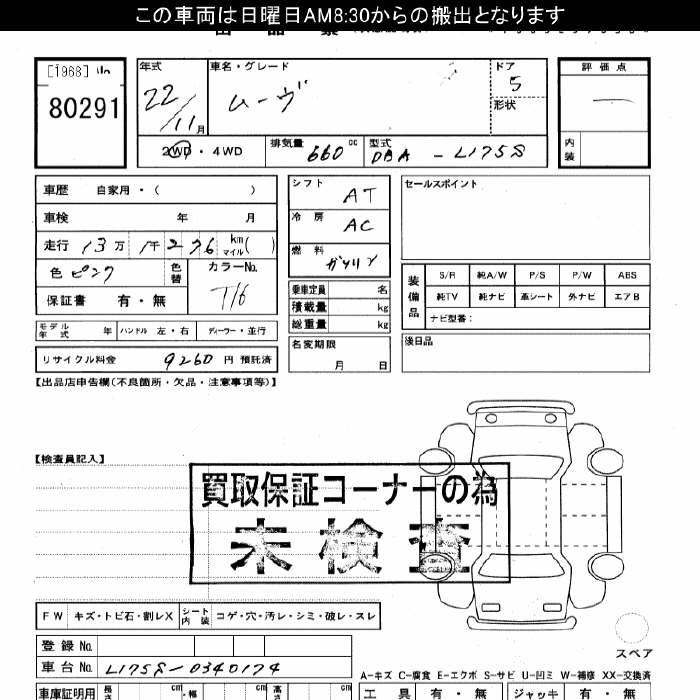 この車両は日曜日AM8:30からの搬出となります
[1968]
80291
年式
22/11月
車名・グレード
ムーヴ
ドア
5
形状
評価点
内装
2WD・4WD
排気量 660 cc
型式 DBA - L175S
車歴 自家用・( )
車検 年 月
走行 13万 1千 276 km マイル ( )
色 ピンク
色替
カラーNo.
T16
保証書 有・無
モデル年式 年 ハンドル 左・右 ディーラー・並行
リサイクル料金 9260 円 預託済
シフト AT
冷房 AC
燃料 ガソリン
乗車定員 名
積載量 kg
総重量 kg
名変期限
月 日
セールスポイント
装備品
S/R 純A/W P/S P/W ABS
純TV 純ナビ 革シート 外ナビ エアB
ナビ型番:
後日品
【出品店申告欄(不良箇所・欠品・注意事項等)】
【検査員記入】
買取保証コーナーの為
未検査
FW キズ・トビ石・割レX シート内装 コゲ・穴・汚レ・シミ・破レ・スレ
スペア
登録No.
車台No. L175S-0340174
A-キズ C-腐食 E-エクボ S-サビ U-凹ミ W-補修 XX-交換済
車庫証明用 長さ cm ・幅 cm 高さ cm
工具 有・無 ジャッキ 有・無